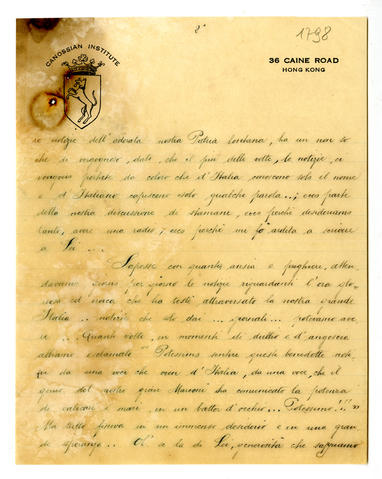 2°
1798
CANOSSIAN INSTITUTE
36 CAINE ROAD
HONG KONG
notizie dell'adorata nostra Patria lontana, ha un non so
che di vergognoso, dato che il più delle volte, le notizie, ci
vengono portate da coloro che d'Italia conoscono solo il nome
e d'Italiano capiscono solo qualche parola...; ecco parte
della nostra discussione di stamane, ecco perchè desideriamo
tanto, avere una radio; ecco perchè mi fo ardita a scrivere
a Lei...
Sapesse con quanta ansia e preghiere, atten-
giorno le notizie riguardanti l'ora
ed eroica che ha testè attraversato la nostra grande
Italia.. notizie che dai... giornali... potevamo ave-
re.. Quante volte, in momenti di dubbio e d'angoscia
abbiamo esclamato Potessimo sentire queste benedette noti-
zie da una voce che viene d'Italia, da una voce, che il
genio del nostro gran Marconi ha comunicato la potenza
di valicare i mari, in un batter d'occhio... Potessimo!!!"
Ma tutto finiva in un immenso desiderio e in una gran
de speranza.. Or a la di Lei, generosità che sappiamo